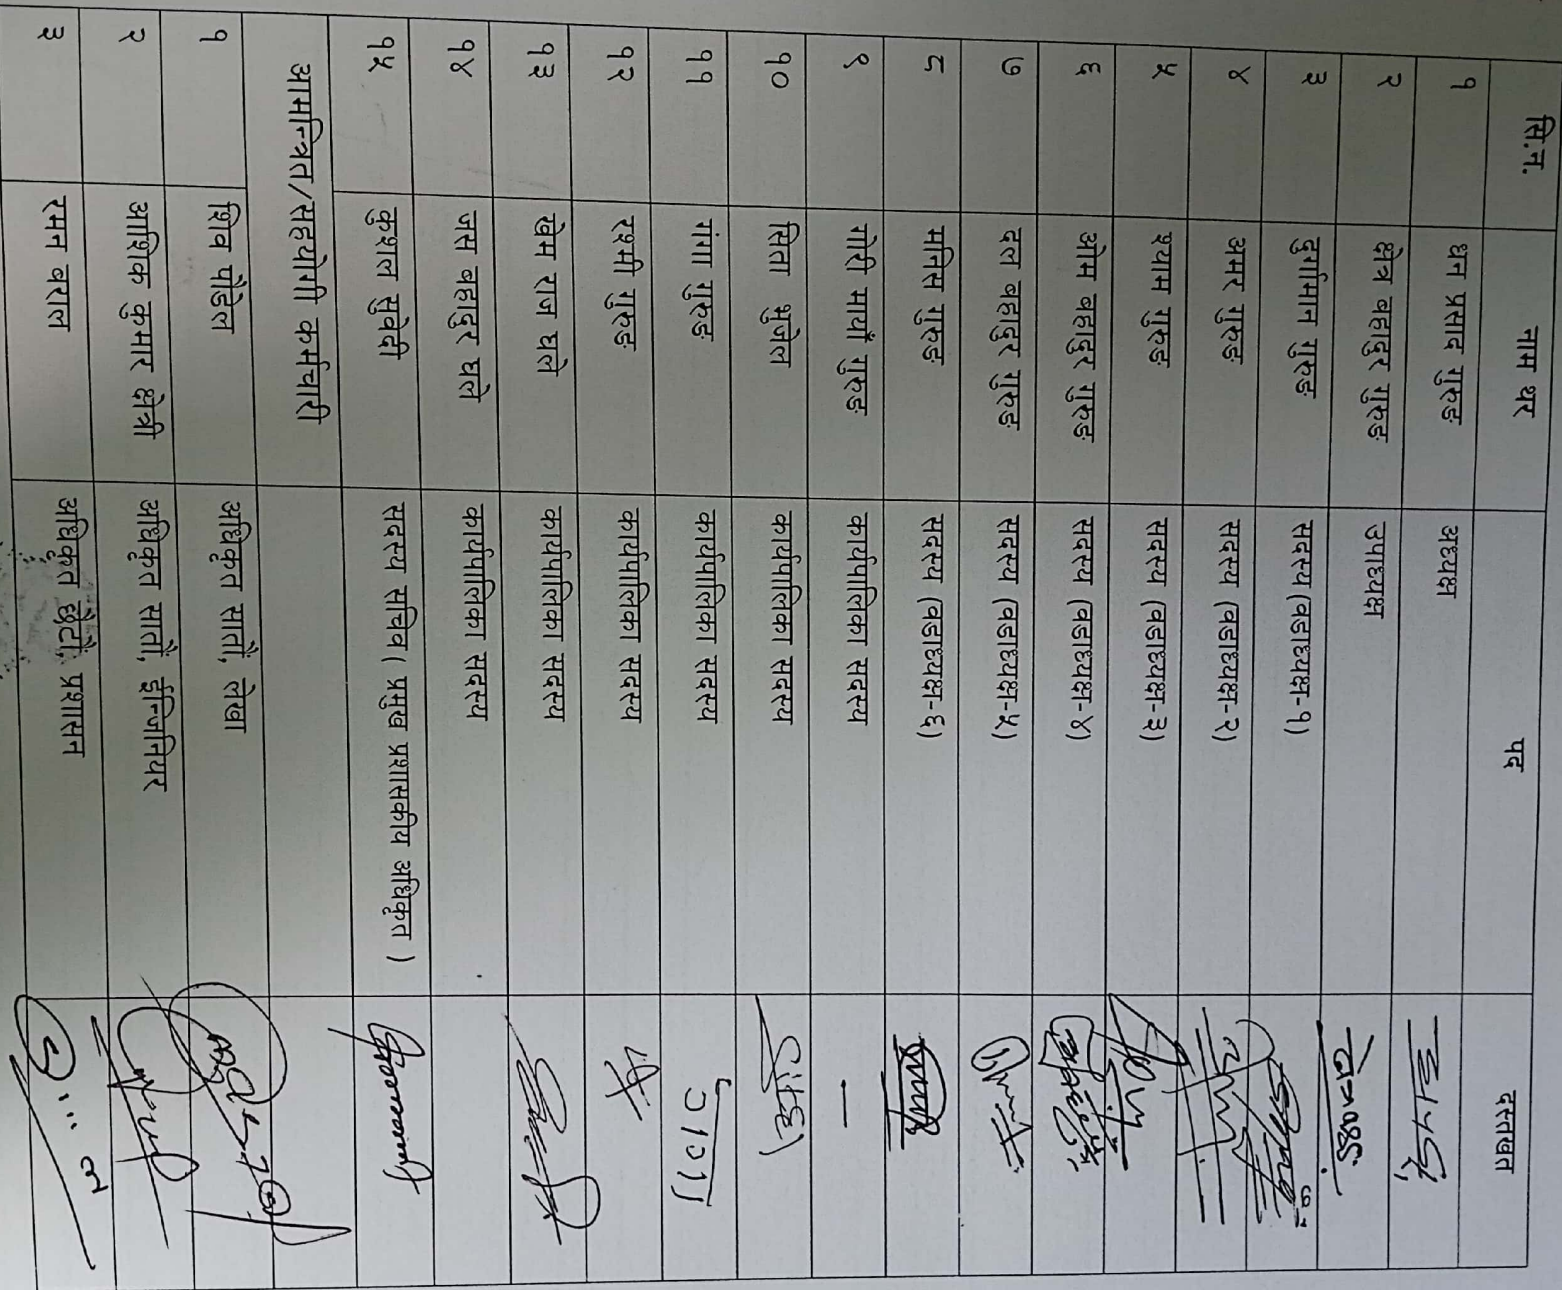 सि.न. नाम थर पद दस्तखत
१ धन प्रसाद गुरुङ अध्यक्ष
२ क्षेत्र बहादुर गुरुङ उपाध्यक्ष
३ दुर्गामान गुरुङ सदस्य (वडाध्यक्ष-१)
४ अमर गुरुङ सदस्य (वडाध्यक्ष-२)
५ श्याम गुरुङ सदस्य (वडाध्यक्ष-३)
६ ओम बहादुर गुरुङ सदस्य (वडाध्यक्ष-४)
७ दल बहादुर गुरुङ सदस्य (वडाध्यक्ष-५)
८ मनिस गुरुङ सदस्य (वडाध्यक्ष-६)
९ गोरी मायाँ गुरुङ कार्यपालिका सदस्य —
१० सिता भुजेल कार्यपालिका सदस्य
११ गंगा गुरुङ कार्यपालिका सदस्य
१२ रश्मी गुरुङ कार्यपालिका सदस्य
१३ खेम राज घले कार्यपालिका सदस्य
१४ जस बहादुर घले कार्यपालिका सदस्य
१५ कुशल सुवेदी सदस्य सचिव ( प्रमुख प्रशासकीय अधिकृत )
आमन्त्रित/सहयोगी कर्मचारी
१ शिव पौडेल अधिकृत सातौं, लेखा
२ आशिक कुमार क्षेत्री अधिकृत सातौं, ईन्जिनियर
३ रमन बराल अधिकृत छैटौं, प्रशासन